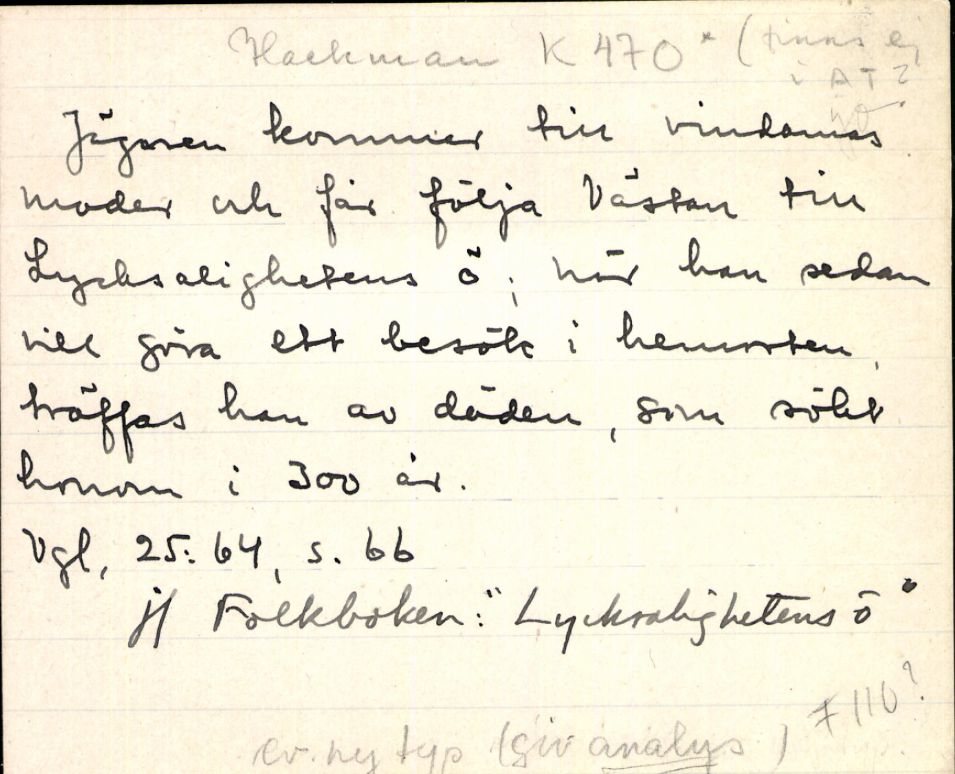 Hackman K 470* (finns ej
i AT?
Jägaren kommer till vindarnas
moder och får följa Västan till
Lycksalighetens ö; när han sedan
vill göra ett besök i hemorten,
träffas han av döden, som sökt
honom i 300 år.
Vgl, 25:64, s. 66
jf Folkboken: "Lycksalighetens ö"
F 110?
ev. ny typ (giv analys)